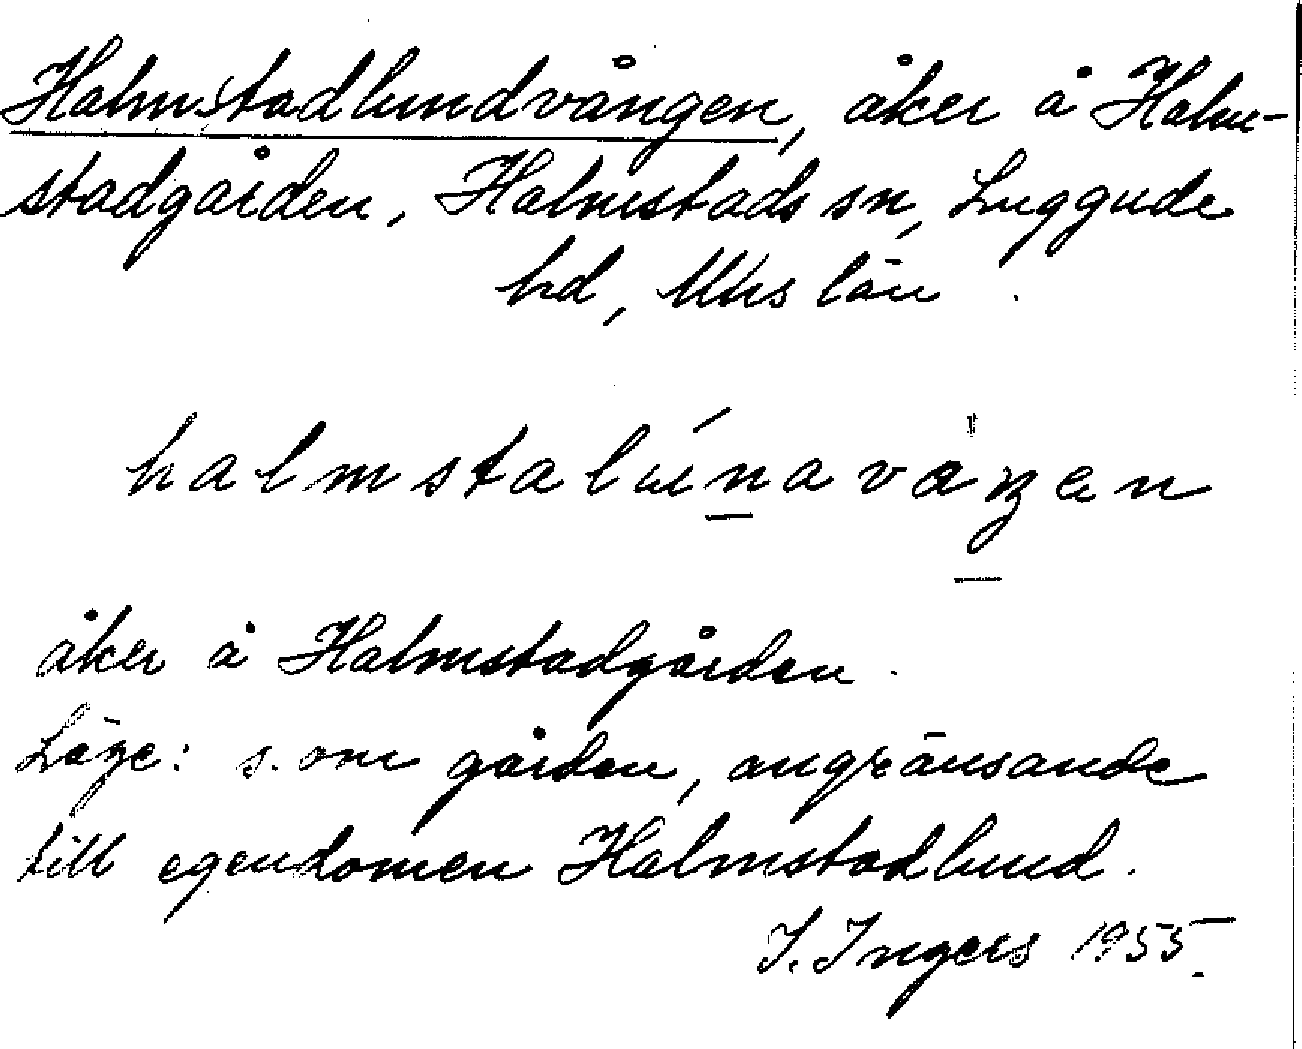 Halmstadlundvången, åker å Halm-
stadgården, Halmstads sn, Luggude
hd, Mhs län.
åker å Halmstadgården.
Läge: s. om gården, angränsande
till egendomen Halmstadlund.
I. Ingers 1955.